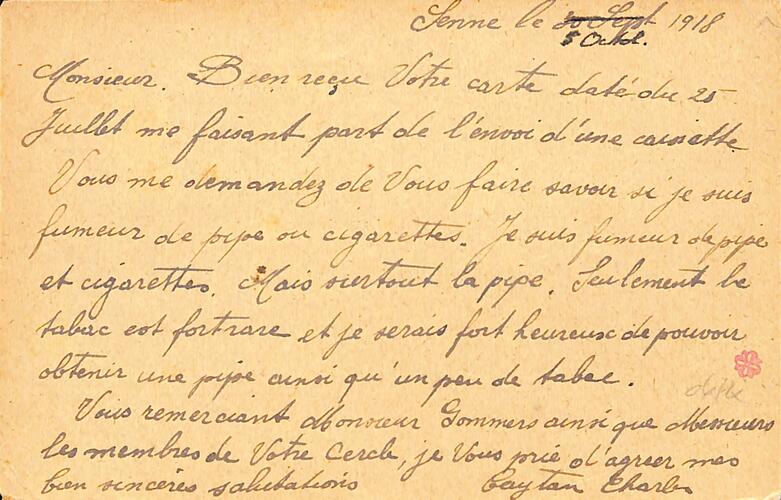 Senne le 30 Sept 1918
5 Octob.
Monsieur. Bien reçu Votre carte daté du 25
Juillet me faisant part de l'envoi d'une caissette.
Vous me demandez de Vous faire savoir si je suis
fumeur de pipe ou cigarettes. Je suis fumeur de pipe
et cigarettes. Mais surtout la pipe. Seulement le
tabac est fort rare et je serais fort heureux de pouvoir
obtenir une pipe ainsi qu'un peu de tabac.
Vous remerciant Monsieur Gommers ainsi que Messieurs
les membres de Votre Cercle, je Vous prie d'agréer mes
bien sincères salutations Caytan Charles